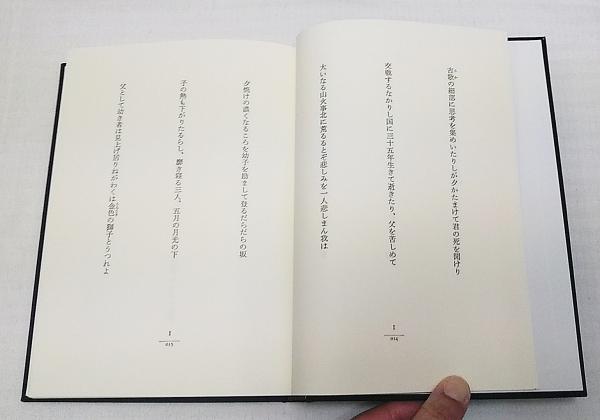 古歌の細部に思考を集めいたりしが夕かたまけて君の死を聞けり
交戦するなかりし国に三十五年生きて逝きたり、父を苦しめて
大いなる山火事北に荒るるとぞ悲しみを一人悲しまん我は
I
014
夕焼けの濃くなるころを幼子を励まして登るだらだらの坂
子の熱も下がりたるらし、靡き寝る三人、五月の月光の下
父として幼き者は見上げ居りねがわくは金色の獅子とうつれよ
I
015